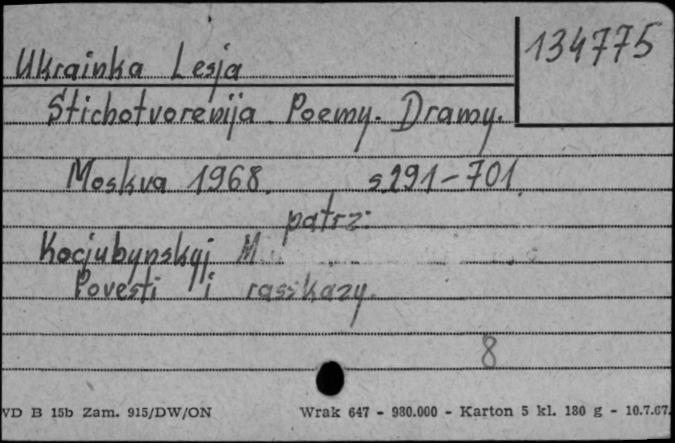 134775
Ukrainka Lesja
Stichotvorenija. Poemy. Dramy.
Moskva 1968. s.291-701.
patrz:
Kocjubynskyj M
Povesti i rasskazy.
8
VD B 15b Zam. 915/DW/ON Wrak 647 - 980.000 - Karton 5 kl. 180 g - 10.7.67.